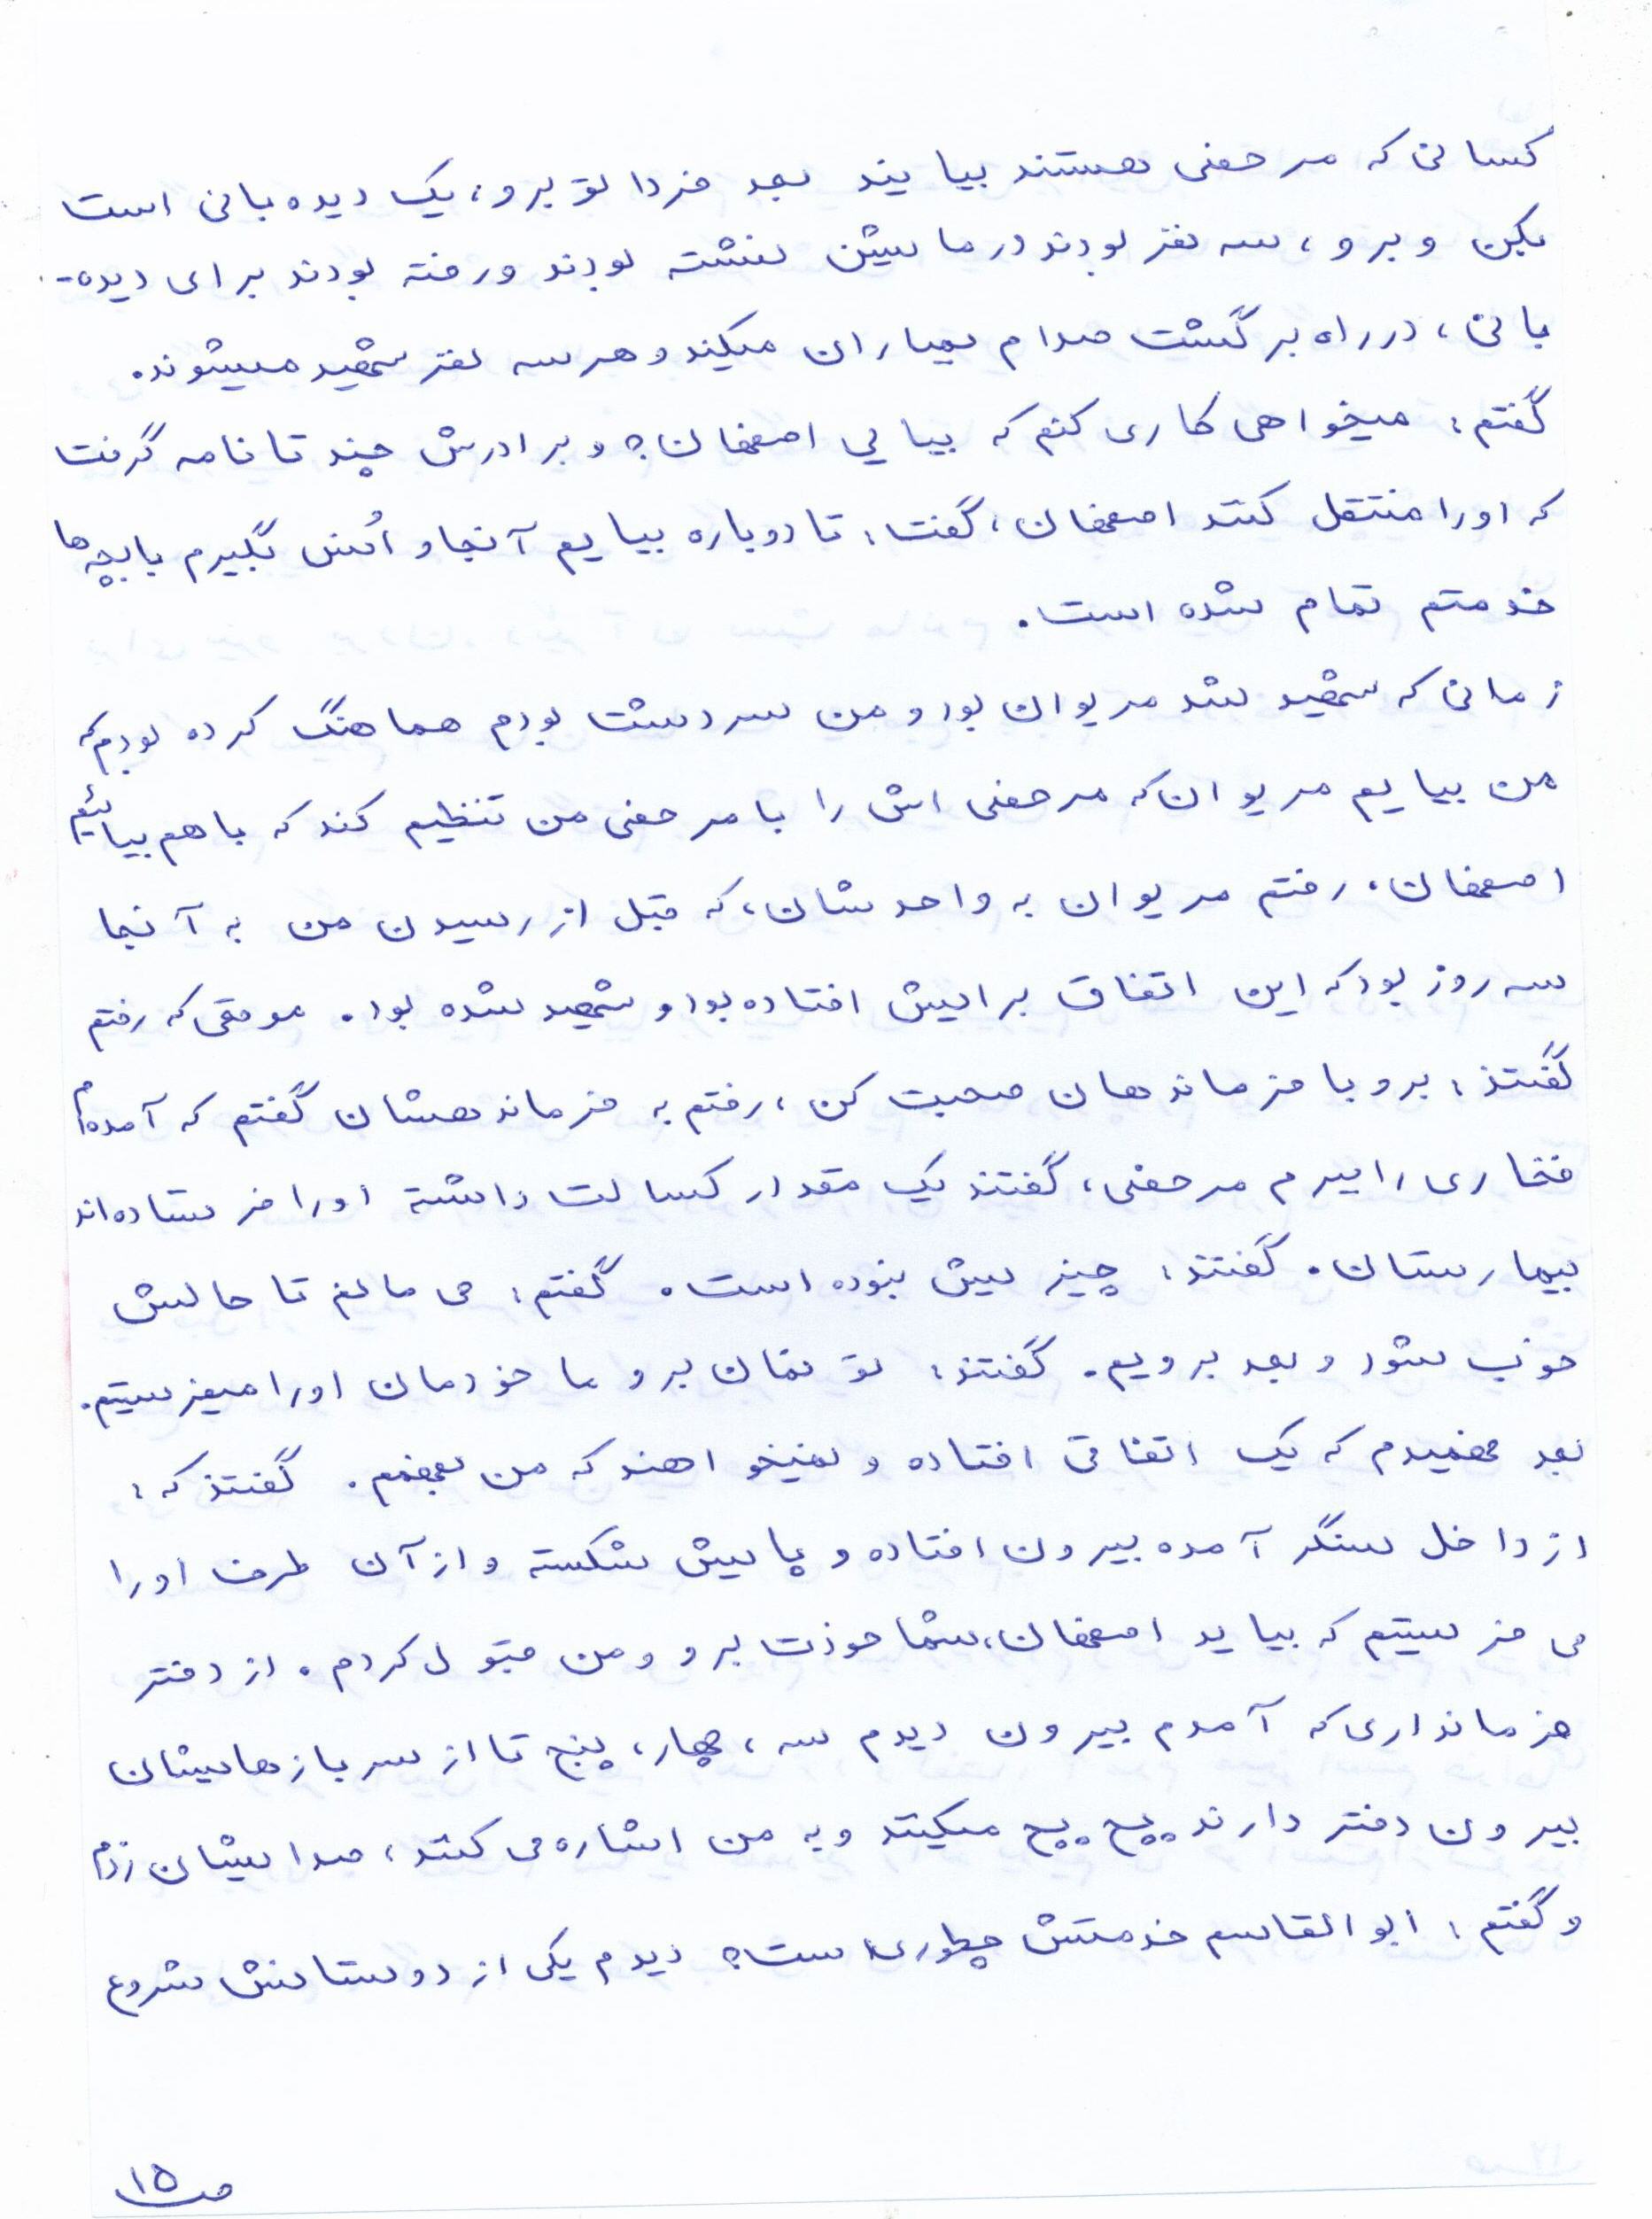 کسانی که مرخصی هستند بیایند بعد فردا تو برو، یک دیده بانی است
بکن و برو، سه نفر بودند در ماشین نشسته بودند و رفته بودند برای دیده-
بانی، در راه برگشت صدام بمباران میکند و هر سه نفر شهید میشوند.
گفتم: میخواهی کاری کنم که بیایی اصفهان؟ و برادرش چند تا نامه گرفت
که او را منتقل کنند اصفهان، گفت: تا دوباره بیایم آنجا و اُنس بگیرم با بچه‌ها
خدمتم تمام شده است.
زمانی که شهید شد مریوان بود و من سردشت بودم هماهنگ کرده بودم که
من بیایم مریوان که مرخصی اش را با مرخصی من تنظیم کند که با هم بیائیم
اصفهان. رفتم مریوان به واحدشان، که قبل از رسیدن من به آنجا
سه روز بود که این اتفاق برایش افتاده بود و شهید شده بود. موقعی که رفتم
گفتند: برو با فرماندهان صحبت کن، رفتم به فرماندهشان گفتم که آمده‌ام
فخاری را ببرم مرخصی، گفتند یک مقدار کسالت داشته او را فرستاده‌اند
بیمارستان. گفتند: چیزیش نبوده است. گفتم: می مانم تا حالش
خوب شود و بعد برویم. گفتند: تو نمان برو ما خودمان او را میفرستیم.
بعد فهمیدم که یک اتفاقی افتاده و نمیخواهند که من بفهمم. گفتند که:
از داخل سنگر آمده بیرون افتاده و پایش شکسته و از آن طرف او را
می فرستیم که بیاید اصفهان، شما خودت برو و من قبول کردم. از دفتر
فرمانداری که آمدم بیرون دیدم سه، چهار، پنج تا از سربازهایشان
بیرون دفتر دارند پچ پچ میکنند و به من اشاره می کنند، صدایشان زدم
و گفتم: ابوالقاسم خدمتش چطوری است؟ دیدم یکی از دوستانش شروع
ص۱۵